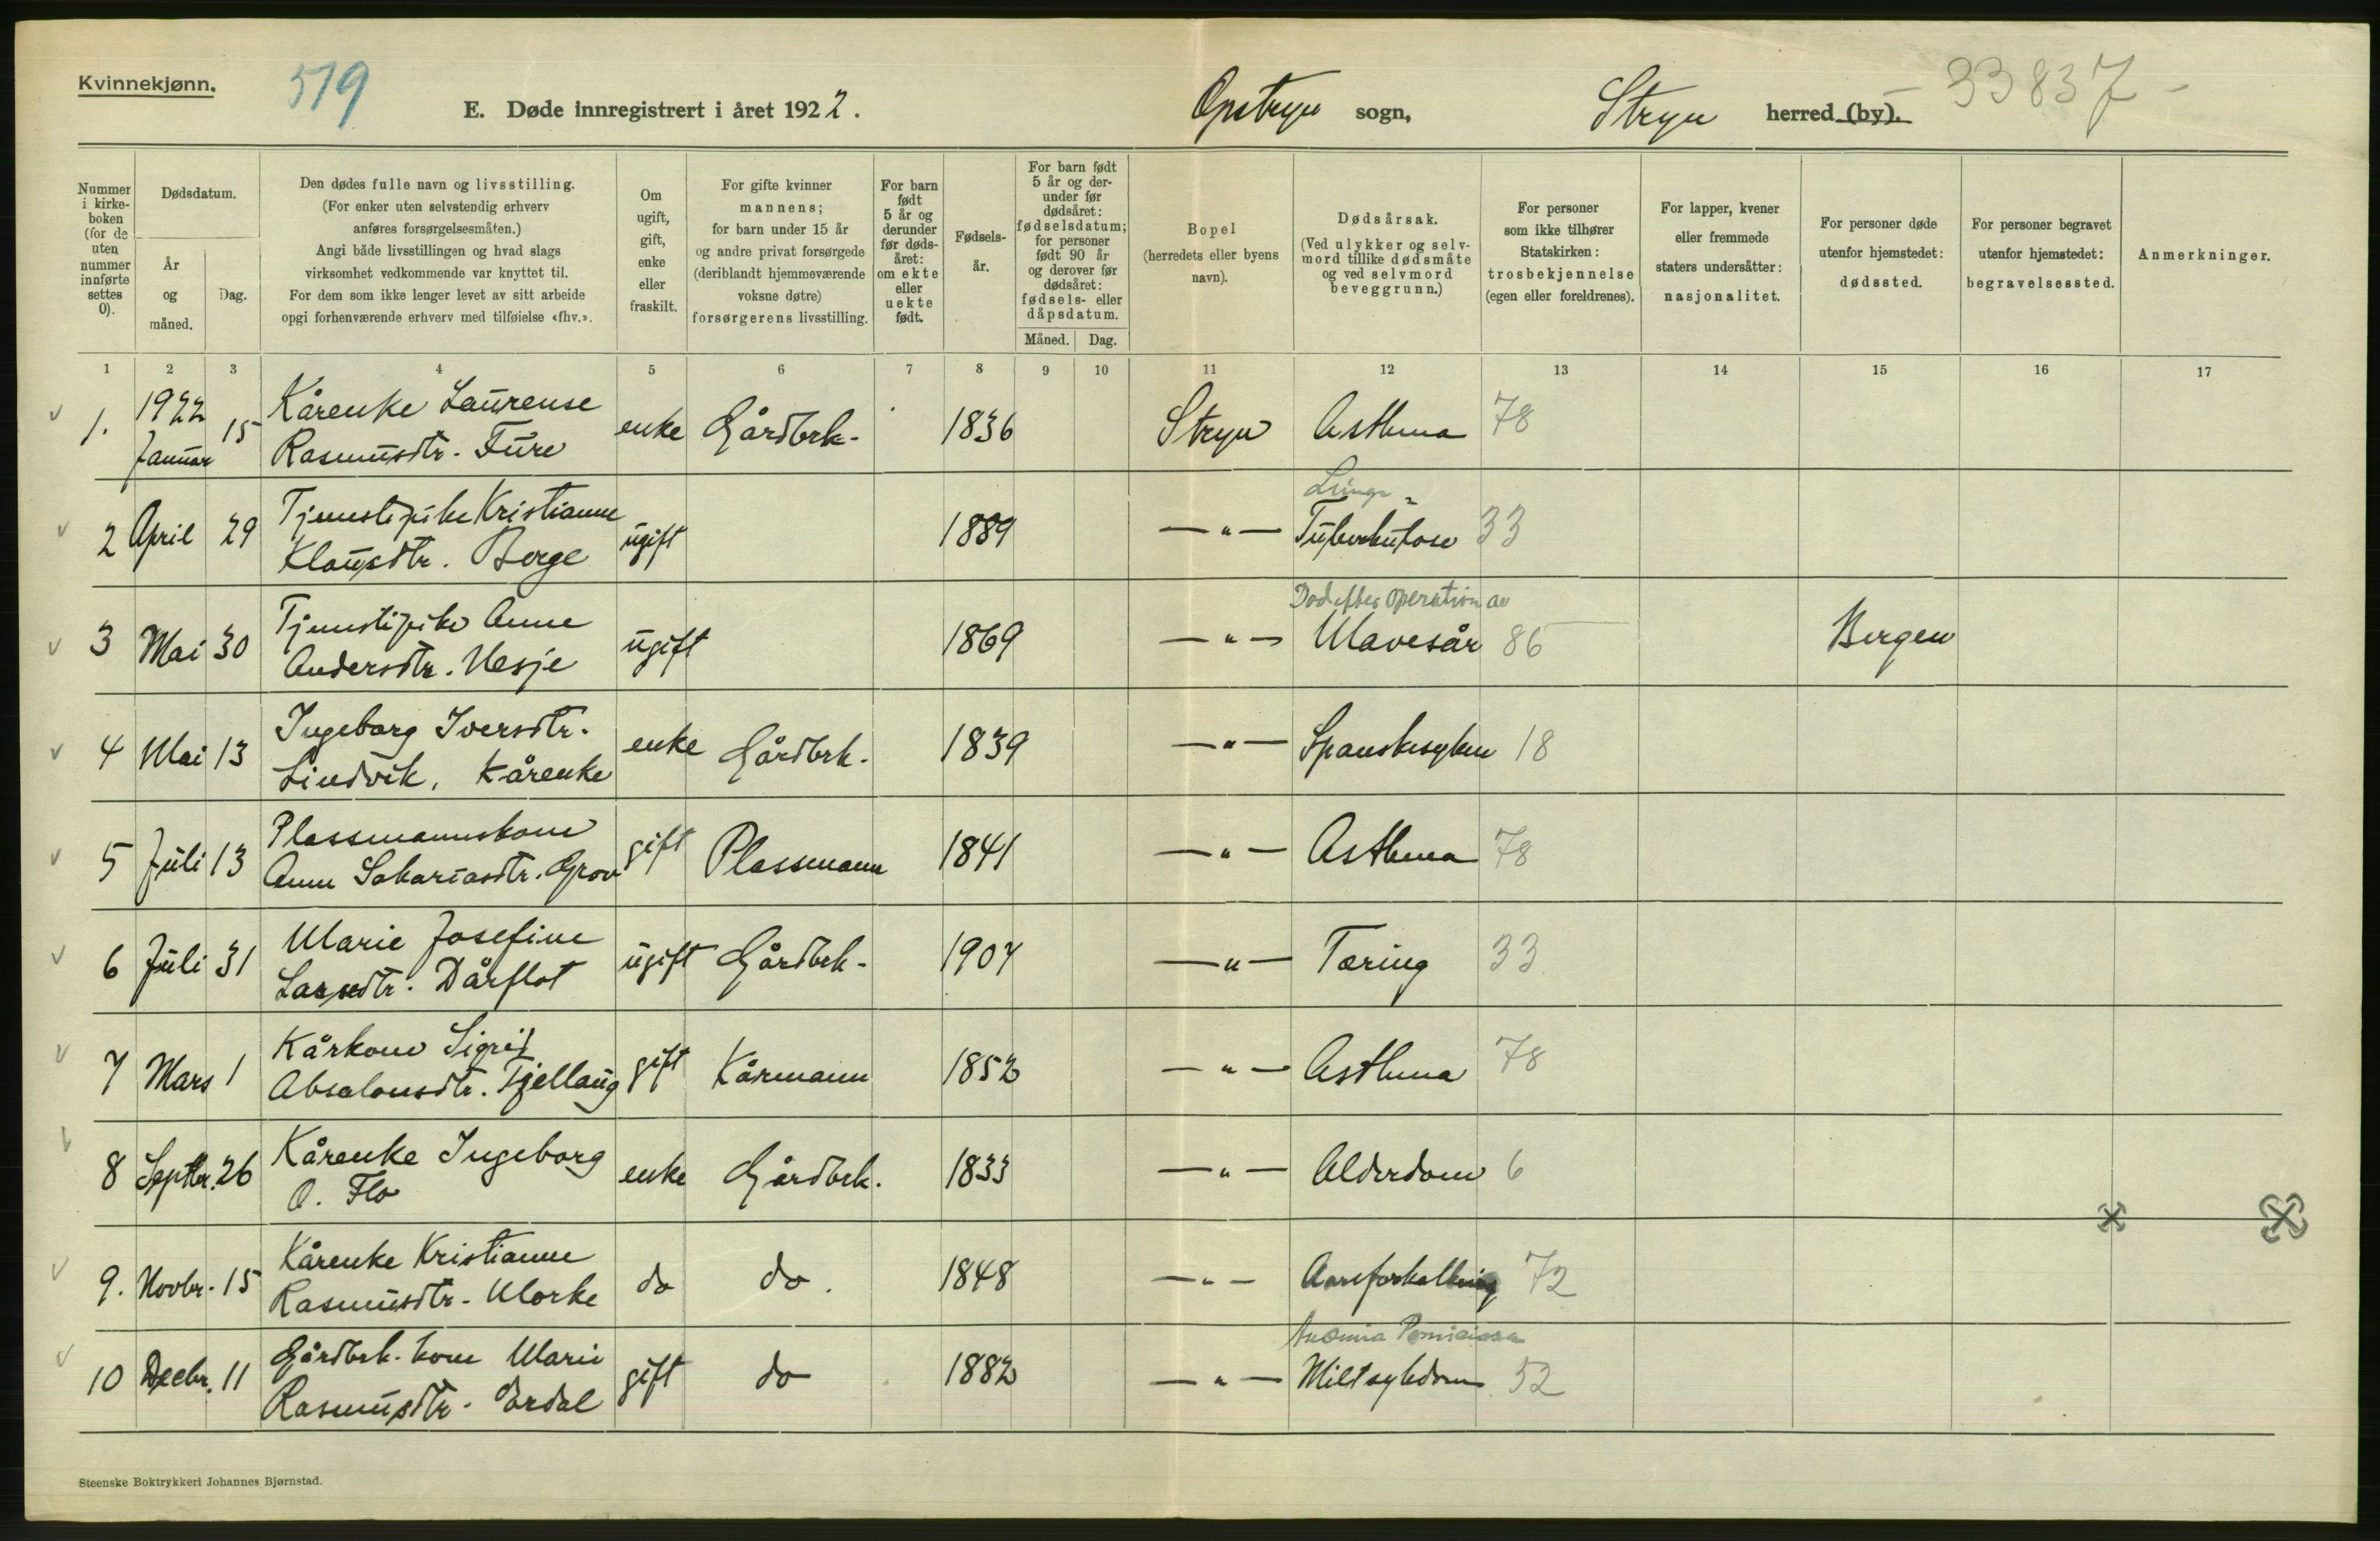 Kvinnekjønn.
519
E. Døde innregistrert i året 1922.
Opstryn sogn,
Stryn herred (by).
33837 -
Nummer i kirkeboken (for de uten nummer innførte settes 0).
Dødsdatum.
År og måned.
Dag.
Den dødes fulle navn og livsstilling.
(For enker uten selvstendig erhverv
anføres forsørgelsesmåten.)
Angi både livsstillingen og hvad slags
virksomhet vedkommende var knyttet til.
For dem som ikke lenger levet av sitt arbeide
opgi forhenværende erhverv med tilføielse «fhv.».
Om ugift, gift, enke eller fraskilt.
For gifte kvinner
mannens;
for barn under 15 år
og andre privat forsørgede
(deriblandt hjemmeværende
voksne døtre)
forsørgerens livsstilling.
For barn født 5 år og derunder før dødsåret: om ekte eller uekte født.
Fødselsår.
For barn født 5 år og derunder før dødsåret: fødselsdatum; for personer født 90 år og derover før dødsåret: fødsels- eller dåpsdatum.
Måned. Dag.
Bopel
(herredets eller byens
navn).
Dødsårsak.
(Ved ulykker og selvmord tillike dødsmåte og ved selvmord beveggrunn.)
For personer
som ikke tilhører
Statskirken:
trosbekjennelse
(egen eller foreldrenes).
For lapper, kvener
eller fremmede
staters undersåtter:
nasjonalitet.
For personer døde
utenfor hjemstedet:
dødssted.
For personer begravet
utenfor hjemstedet:
begravelsessted.
Anmerkninger.
1 2 3 4 5 6 7 8 9 10 11 12 13 14 15 16 17
1. 1922 Januar 15 Kårenke Laurense
Rasmusdtr. Fure enke Gårdbrk. 1836 Stryn Asthma 78
2 April 29 Tjenestepike Kristianne
Klausdtr. Berge ugift 1889 — " — Lunge-
Tuberkulose 33
3 Mai 30 Tjenestepike Anne
Andersdtr. Hesje ugift 1869 — " — Død efter operation av
Mavesår 86 Bergen
4 Mai 13 Ingeborg Iversdtr.
Lindvik, Kårenke enke Gårdbrk. 1839 — " — Spanskesyken 18
5 Juli 13 Plassmannskone
Anne Sakariasdtr. Grov gift Plassmann 1841 — " — Asthma 78
6 Juli 31 Marie Josefine
Larsdtr. Dårflot ugift Gårdbrk. 1904 — " — Tæring 33
7 Mars 1 Kårkone Sigrid
Absalonsdtr. Tjellaug gift Kårmann 1852 — " — Asthma 78
8 Septbr. 26 Kårenke Ingeborg
O. Flo enke Gårdbrk. 1833 — " — Alderdom 6
9. Novbr. 15 Kårenke Kristianne
Rasmusdtr. Mork​e do do. 1848 — " — Aareforkalkning 72
10 Decbr. 11 Gårdbrk. kone Marie
Rasmusdtr. Erdal gift do 1882 — " — Anæmia Perniciosa
Miltsykdom 52
Steenske Boktrykkeri Johannes Bjørnstad.